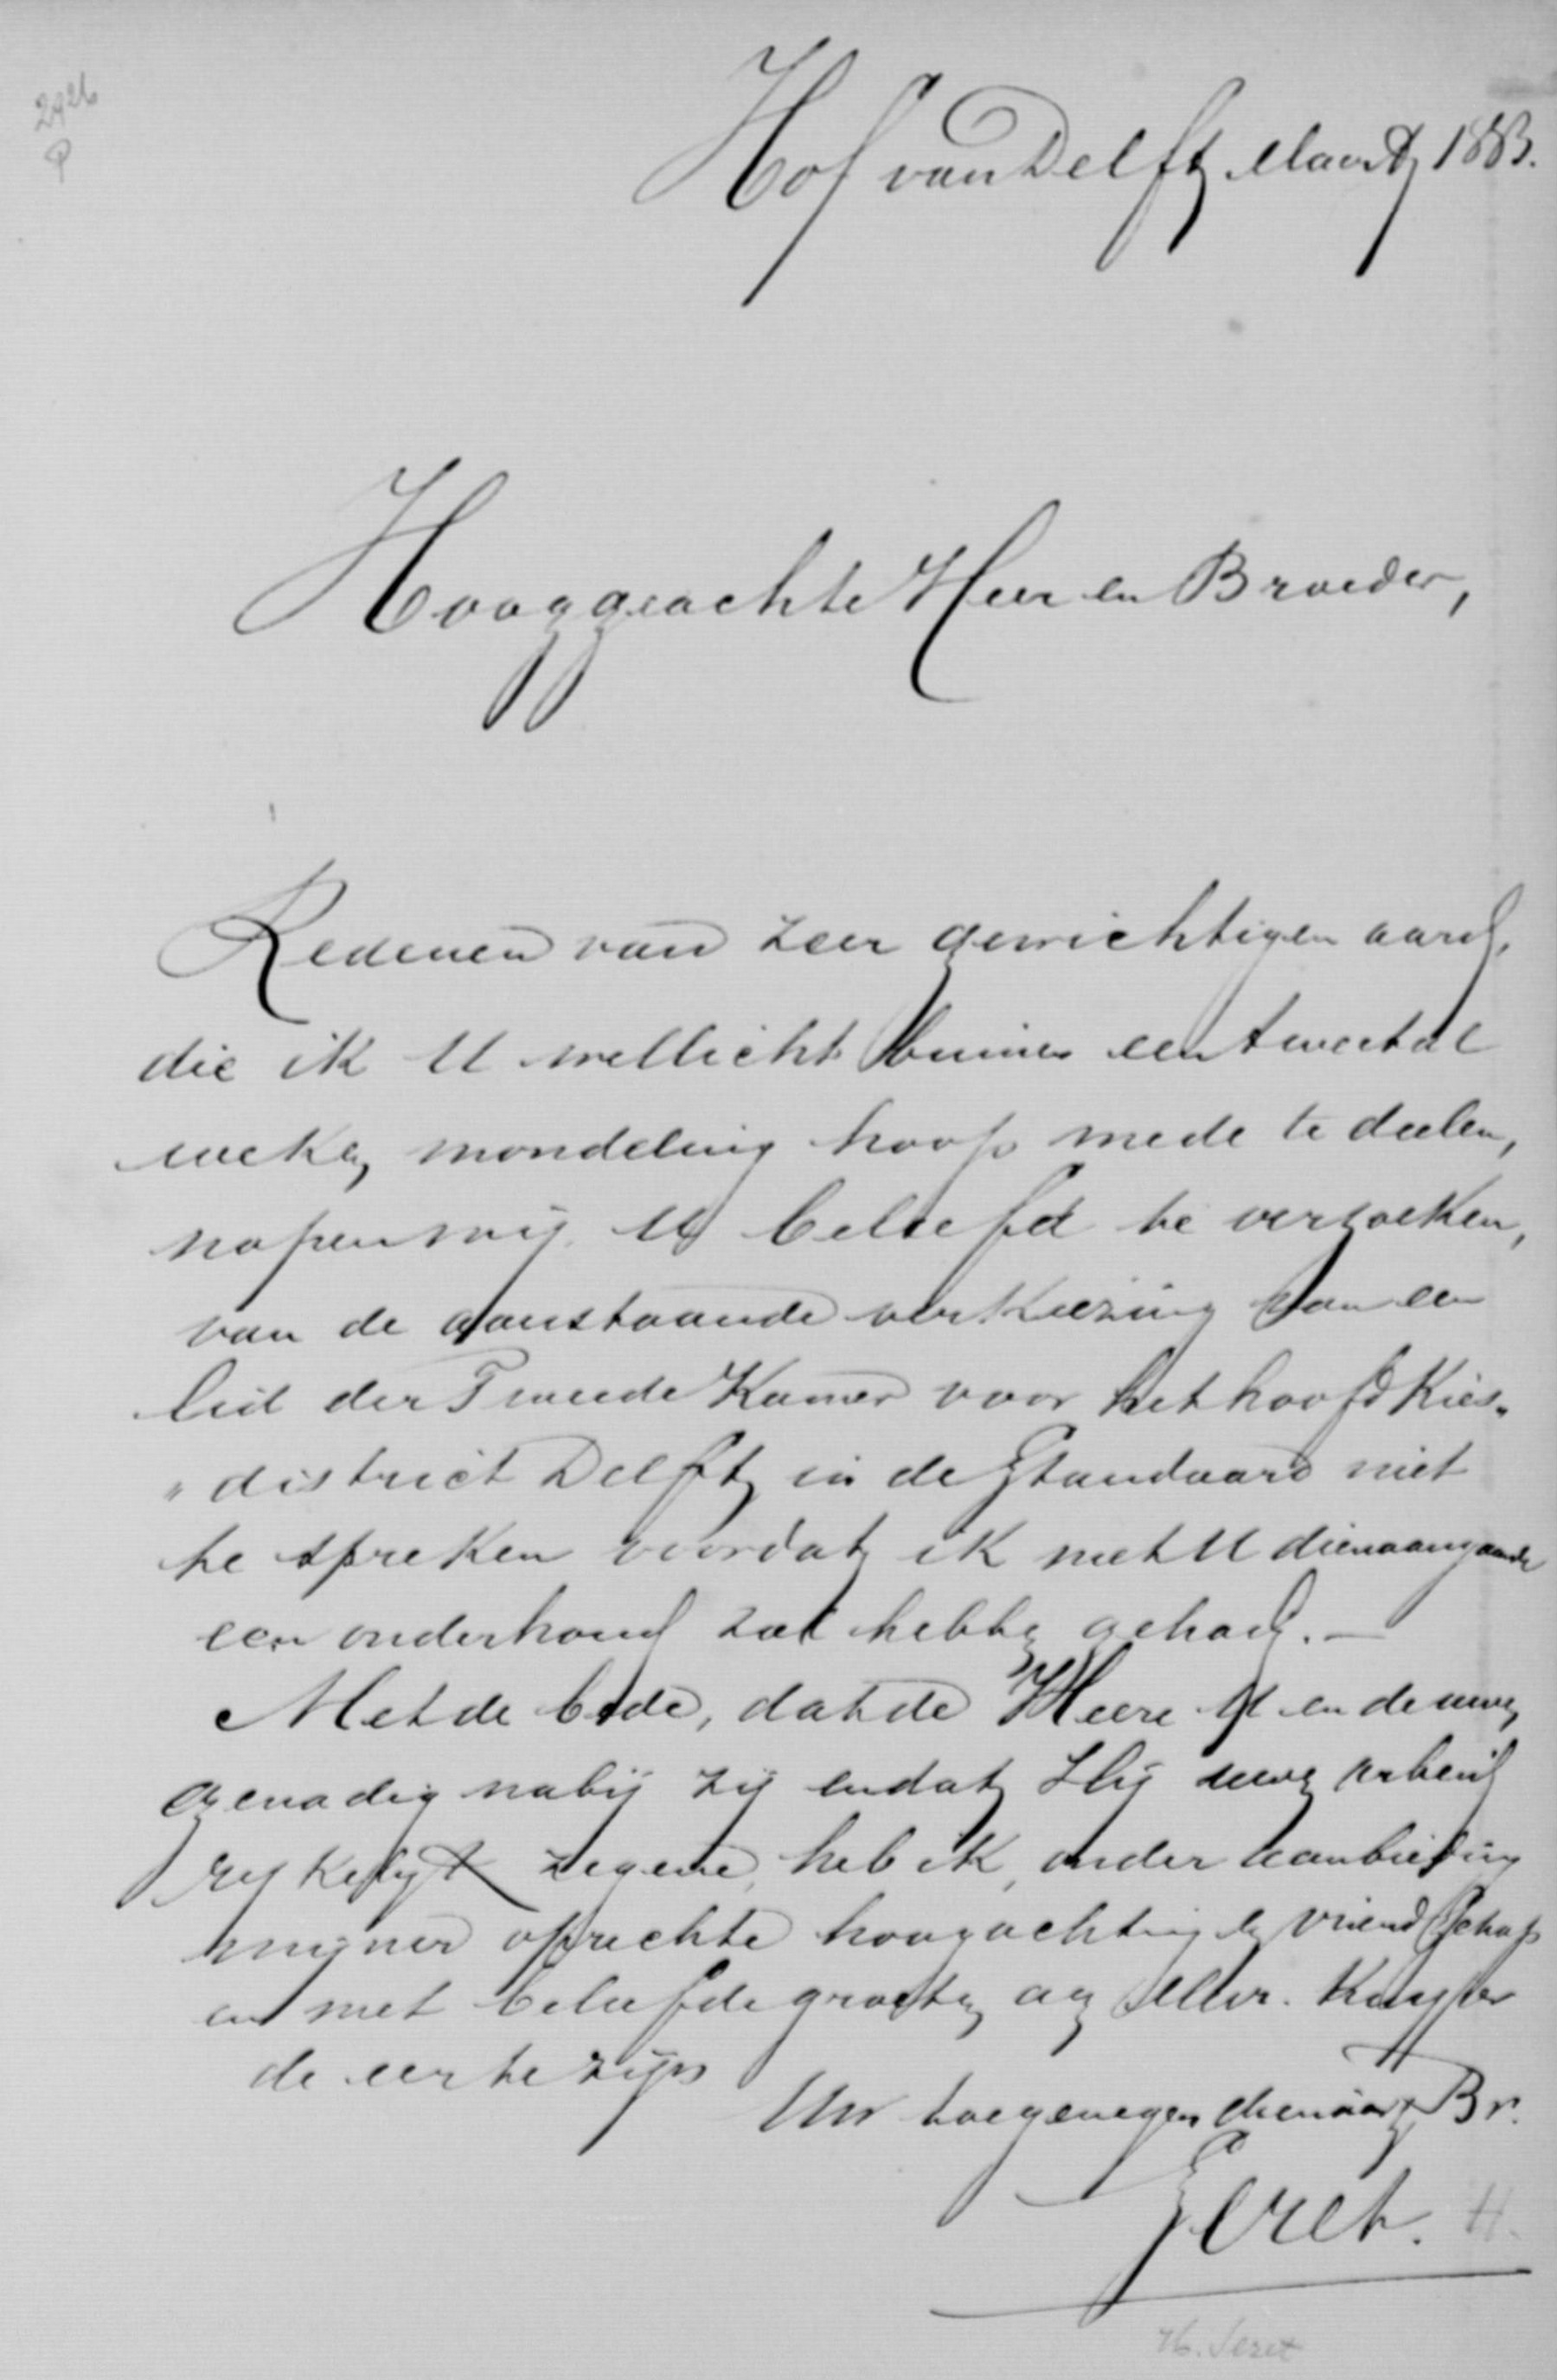 2926
P
Hof van Delft, Maart 1883.
Hooggeachte Heer en Broeder,
Redenen van zeer gewichtigen aard,
die ik U wellicht binnen een tweetal
weken mondeling hoop mede te deelen,
nopen mij U beleefd te verzoeken,
van de aanstaande verkiezing van een
lid der Tweede Kamer voor het hoofdkies„
„district Delft in de Standaard niet
te spreken voordat ik met U dienaangaande
een onderhoud zal hebben gehad. —
Met de bede, dat de Heere U en de uwen
genadig nabij zij en dat Hij uwen arbeid
rijkelijk zegene, heb ik, onder aanbieding
mijner oprechte hoogachting en vriendschap
en met beleefde groeten aan Mevr. Kuyper
de eer te zijn
Uw toegenegen dienaar en Br.
Seret. H.
H. Seret